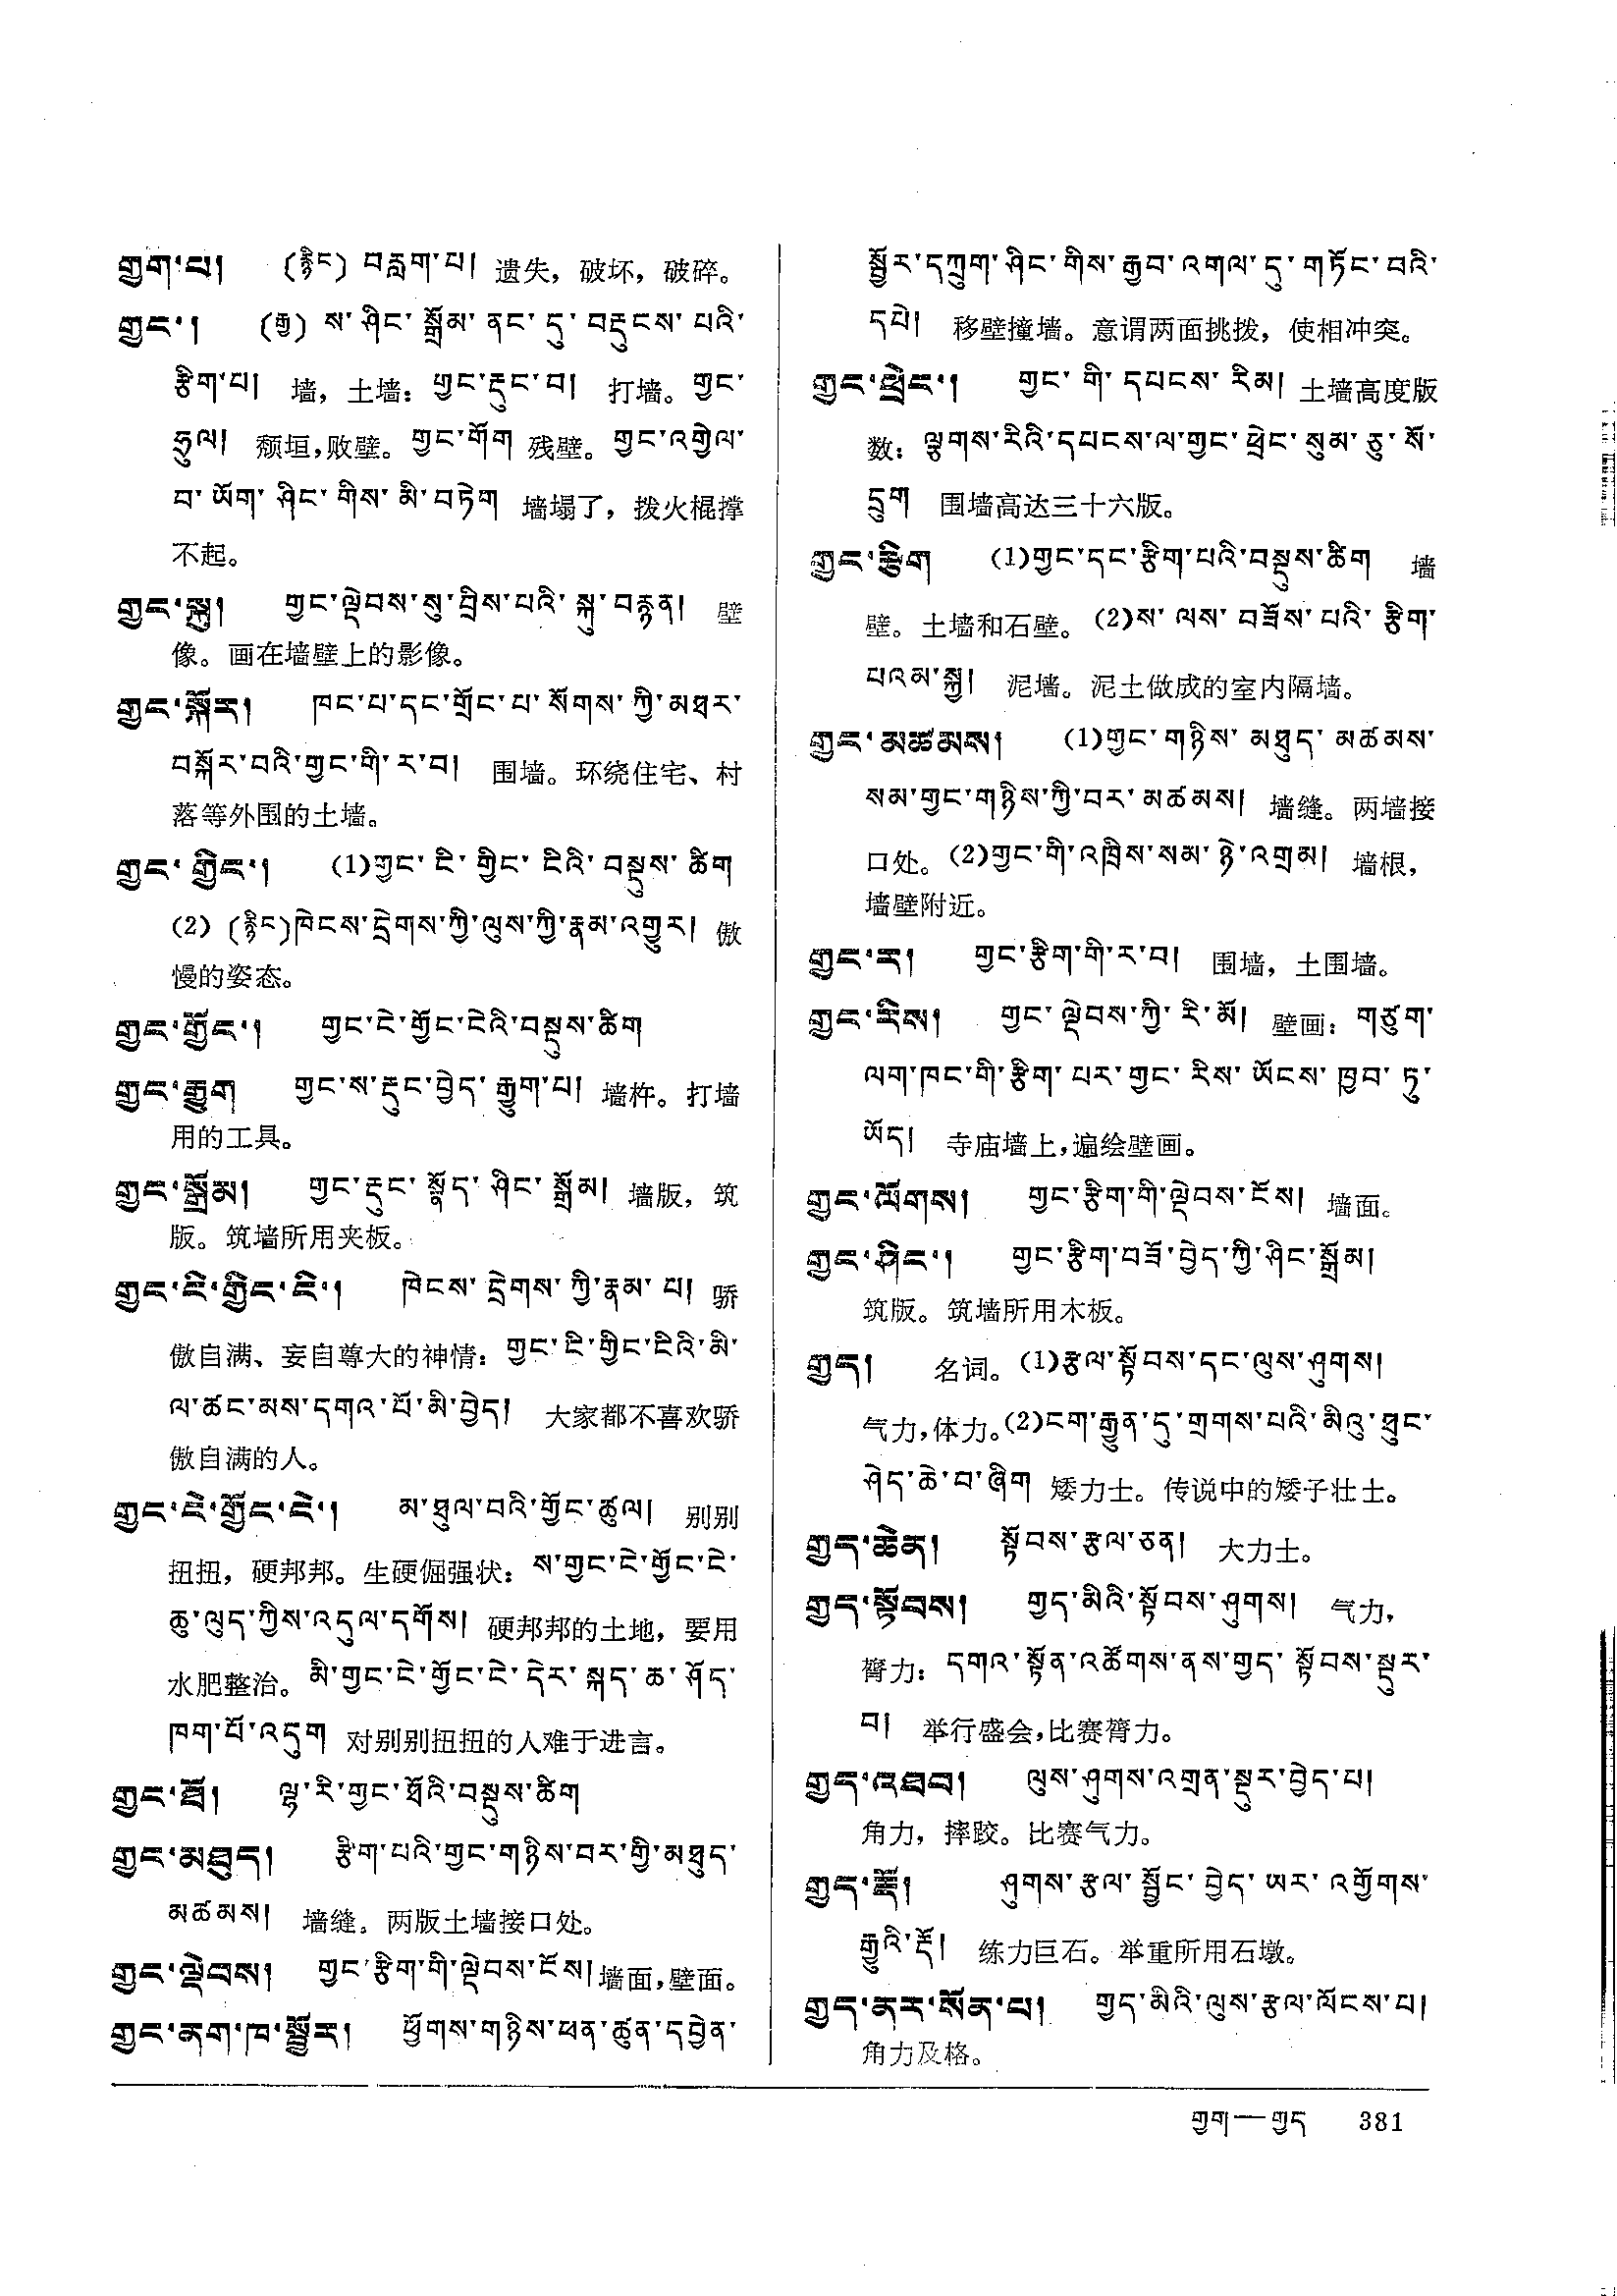 གྱག་པ། (རྙིང) བརླག་པ། 遗失，破坏，破碎。
གྱང་། (རྒྱ) ས་ཤིང་སྒྲོམ་ནང་དུ་བརྡུངས་པའི་
རྩིག་པ། 墙，土墙：གྱང་རྡུང་བ། 打墙。གྱང་
ཧྲུལ། 颓垣，败壁。གྱང་གོག 残壁。གྱང་འགྱེལ་
བ་ཡོག་ཤིང་གིས་མི་བཏེག 墙塌了，拨火棍撑
不起。
གྱང་སྐུ། གྱང་ལྡེབས་སུ་བྲིས་པའི་སྐུ་བརྙན། 壁
像。画在墙壁上的影像。
གྱང་སྐོར། ཁང་པ་དང་གྲོང་པ་སོགས་ཀྱི་མཐར་
བསྐོར་བའི་གྱང་གི་ར་བ། 围墙。环绕住宅、村
落等外围的土墙。
གྱང་གྱིང་། (1)གྱང་ངི་གྱིང་ངིའི་བསྡུས་ཚིག
(2) (རྙིང)ཁེངས་དྲེགས་ཀྱི་ལུས་ཀྱི་རྣམ་འགྱུར། 傲
慢的姿态。
གྱང་གྱོང་། གྱང་ངེ་གྱོང་ངེའི་བསྡུས་ཚིག
གྱང་རྒྱུག གྱང་ས་རྡུང་བྱེད་རྒྱུག་པ། 墙杵。打墙
用的工具。
གྱང་སྒྲོམ། གྱང་རྡུང་སྣོད་ཤིང་སྒྲོམ། 墙版，筑
版。筑墙所用夹板。
གྱང་ངི་གྱིང་ངི་། ཁེངས་དྲེགས་ཀྱི་རྣམ་པ། 骄
傲自满、妄自尊大的神情：གྱང་ངི་གྱིང་ངིའི་མི་
ལ་ཚང་མས་དགའ་པོ་མི་བྱེད། 大家都不喜欢骄
傲自满的人。
གྱང་ངེ་གྱོང་ངེ་། མ་ཐུལ་བའི་གྱོང་ཚུལ། 别别
扭扭，硬邦邦。生硬倔强状：ས་གྱང་ངེ་གྱོང་ངེ་
ཆུ་ལུད་ཀྱིས་འདུལ་དགོས། 硬邦邦的土地，要用
水肥整治。མི་གྱང་ངེ་གྱོང་ངེ་དེར་སྐད་ཆ་ཤོད་
ཁག་པོ་འདུག 对别别扭扭的人难于进言。
གྱང་ཐོ། ལྷ་རི་གྱང་ཐོའི་བསྡུས་ཚིག
གྱང་མཐུད། རྩིག་པའི་གྱང་གཉིས་བར་གྱི་མཐུད་
མཚམས། 墙缝。两版土墙接口处。
གྱང་ལྡེབས། གྱང་རྩིག་གི་ལྡེབས་ངོས། 墙面，壁面。
གྱང་ནག་ཁ་སྤྲོར། ཕྱོགས་གཉིས་ཕན་ཚུན་དབྱེན་
སྦྱོར་དཀྲུག་ཤིང་གིས་རྒྱབ་འགལ་དུ་གཏོང་བའི་
དཔེ། 移壁撞墙。意谓两面挑拨，使相冲突。
གྱང་ཕྲེང་། གྱང་གི་དཔངས་རིམ། 土墙高度版
数：ལྕགས་རིའི་དཔངས་ལ་གྱང་ཕྲེང་སུམ་ཅུ་སོ་
དྲུག 围墙高达三十六版。
གྱང་རྩིག (1)གྱང་དང་རྩིག་པའི་བསྡུས་ཚིག 墙
壁。土墙和石壁。(2)ས་ལས་བཟོས་པའི་རྩིག་
པའམ་སྐྱ། 泥墙。泥土做成的室内隔墙。
གྱང་མཚམས། (1)གྱང་གཉིས་མཐུད་མཚམས་
སམ་གྱང་གཉིས་ཀྱི་བར་མཚམས། 墙缝。两墙接
口处。(2)གྱང་གི་འཁྲིས་སམ་ཉེ་འགྲམ། 墙根，
墙壁附近。
གྱང་ར། གྱང་རྩིག་གི་ར་བ། 围墙，土围墙。
གྱང་རིས། གྱང་ལྡེབས་ཀྱི་རི་མོ། 壁画：གཙུག་
ལག་ཁང་གི་རྩིག་པར་གྱང་རིས་ཡོངས་ཁྱབ་ཏུ་
ཡོད། 寺庙墙上，遍绘壁画。
གྱང་ལོགས། གྱང་རྩིག་གི་ལྡེབས་ངོས། 墙面。
གྱང་ཤིང་། གྱང་རྩིག་བཟོ་བྱེད་ཀྱི་ཤིང་སྒྲོམ།
筑版。筑墙所用木板。
གྱད། 名词。(1)རྩལ་སྟོབས་དང་ལུས་ཤུགས།
气力，体力。(2)ངག་རྒྱུན་དུ་གྲགས་པའི་མིའུ་ཐུང་
ཤེད་ཆེ་བ་ཞིག 矮力士。传说中的矮子壮士。
གྱད་ཆེན། སྟོབས་རྩལ་ཅན། 大力士。
གྱད་སྟོབས། གྱད་མིའི་སྟོབས་ཤུགས། 气力，
膂力：དགའ་སྟོན་འཚོགས་ནས་གྱད་སྟོབས་སྡུར་
བ། 举行盛会，比赛膂力。
གྱད་འཐབ། ལུས་ཤུགས་འགྲན་སྡུར་བྱེད་པ།
角力，摔跤。比赛气力。
གྱད་རྡོ། ཤུགས་རྩལ་སྦྱོང་བྱེད་ཡར་འགྱོགས་
རྒྱུའི་རྡོ། 练力巨石。举重所用石墩。
གྱད་ནར་སོན་པ། གྱད་མིའི་ལུས་རྩལ་ལོངས་པ།
角力及格。
གྱག—གྱད 381